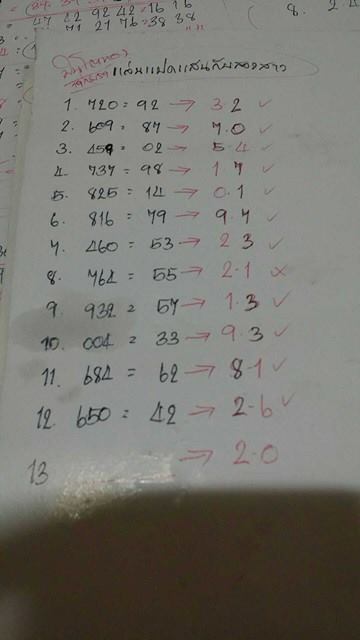 47 22 92 42 = 16 16
71 21 76 = 38 38
8. 2.4
1. 720 = 92 → 3.2 ✓
2. 609 = 87 → 7.0 ✓
3. 459 = 02 → 5.4 ✓
4. 737 = 98 → 1.7 ✓
5. 825 = 14 → 0.1 ✓
6. 816 = 79 → 9.7 ✓
7. 460 = 53 → 2 3 ✓
8. 764 = 55 → 2.1 ×
9. 932 = 57 → 1.3 ✓
10. 004 = 33 → 9.3 ✓
11. 684 = 62 → 8.1 ✓
12. 650 = 42 → 2.6 ✓
13 → 2.0